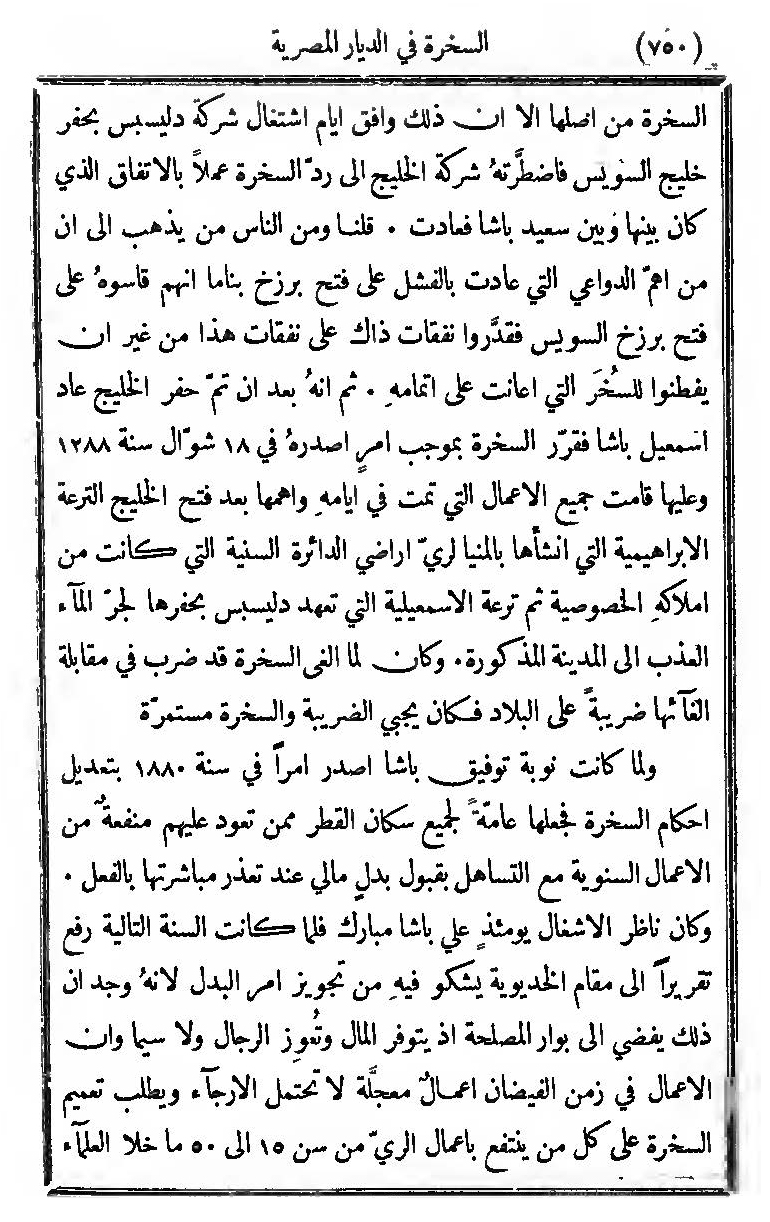 (٧٥٠) السخرة في الديار المصرية
السخرة من اصلها الا ان ذلك وافق ايام اشتغال شركة دليسبس بحفر
خليج السويس فاضطرَّتهُ شركة الخليج الى ردّ السخرة عملاً بالاتفاق الذي
كان بينها وبين سعيد باشا فعادت ٠ قلنا ومن الناس من يذهب الى ان
من اهمّ الدواعي التي عادت بالفشل على فتح برزخ بناما انهم قاسوهُ على
فتح برزخ السويس فقدَّروا نفقات ذاك على نفقات هذا من غير ان
يفطنوا للسُخَر التي اعانت على اتمامهِ ٠ ثم انهُ بعد ان تمّ حفر الخليج عاد
اسمعيل باشا فقرّر السخرة بموجب امرٍ اصدرهُ في ١٨ شوّال سنة ١٢٨٨
وعليها قامت جميع الاعمال التي تمت في ايامهِ واهمها بعد فتح الخليج الترعة
الابراهيمية التي انشأها بالمنيا لريّ اراضي الدائرة السنية التي كانت من
املاكهِ الخصوصية ثم ترعة الاسمعيلية التي تعهد دليسبس بحفرها لجرّ المآء
العذب الى المدينة المذكورة٠ وكان لما الغى السخرة قد ضرب في مقابلة
الغآئها ضريبةً على البلاد فكان يجبي الضريبة والسخرة مستمرّة
ولما كانت نوبة توفيق باشا اصدر امراً في سنة ١٨٨٠ بتعديل
احكام السخرة فجعلها عامّةً لجميع سكان القطر ممن تعود عليهم منفعةٌ من
الاعمال السنوية مع التساهل بقبول بدلٍ مالي عند تعذر مباشرتها بالفعل ٠
وكان ناظر الاشغال يومئذٍ علي باشا مبارك فلما كانت السنة التالية رفع
تقريراً الى مقام الخديوية يشكو فيهِ من تجويز امر البدل لانهُ وجد ان
ذلك يفضي الى بوار المصلحة اذ يتوفر المال وتُعوِز الرجال ولا سيما وان
الاعمال في زمن الفيضان اعمالٌ معجلَّة لا تحتمل الارجآء ويطلب تعميم
السخرة على كل من ينتفع باعمال الريّ من سن ١٥ الى ٥٠ ما خلا العلمآء